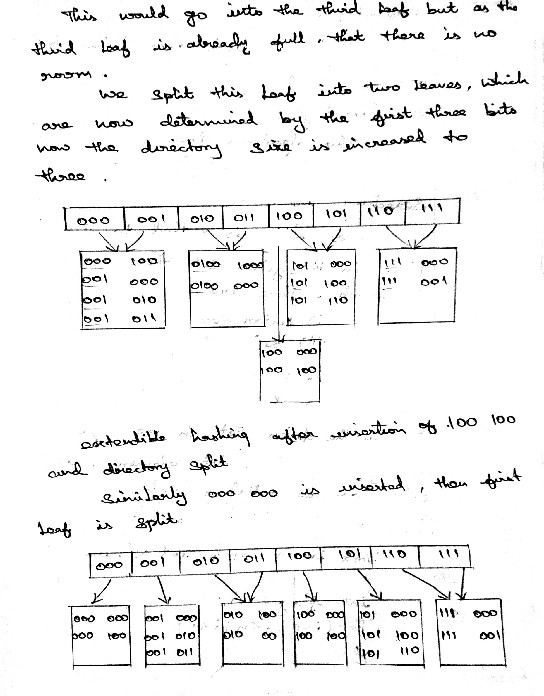 This would go into the third leaf but as the
third leaf is already full, that there is no
room.
We split this leaf into two leaves, which
are now determined by the first three bits
now the directory size is increased to
three.
000 001 010 011 100 101 110 111
000 100 0100 1000 101 000 111 000
001 000 0100 000 101 100 111 001
001 010 101 110
001 011
100 000
100 100
extendible hashing after insertion of 100 100
and directory split
Similarly 000 000 is inserted, then first
leaf is split
000 001 010 011 100 101 110 111
000 000 001 000 010 100 100 000 101 000 111 000
000 100 001 010 010 00 100 100 101 100 111 001
001 011 101 110